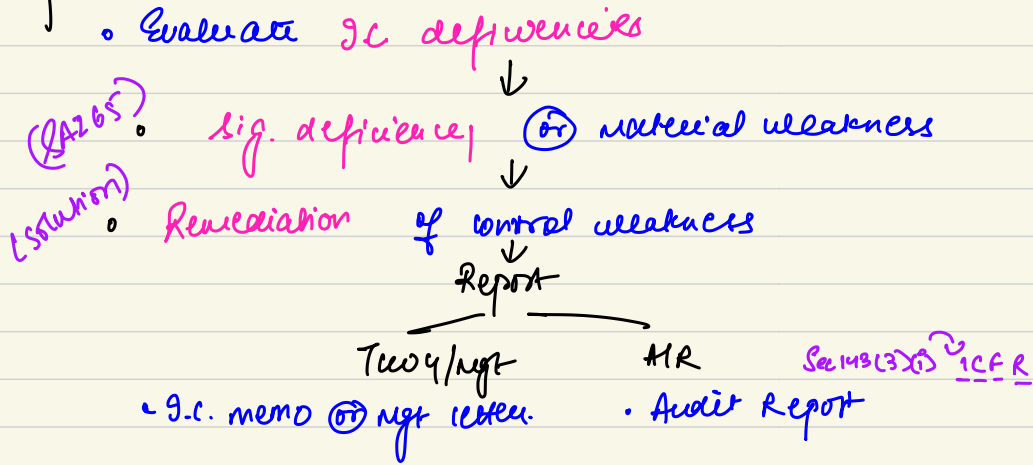 • Evaluate IC deficiencies
↓
(SA265) • Sig. deficiency (or) material weakness
↓
(solution) • Remediation of control weakness
↓
Report
TCWG/Mgt AIR Sec 143(3)(i) ICFR
• I.C. memo (or) Mgt letter. • Audit Report